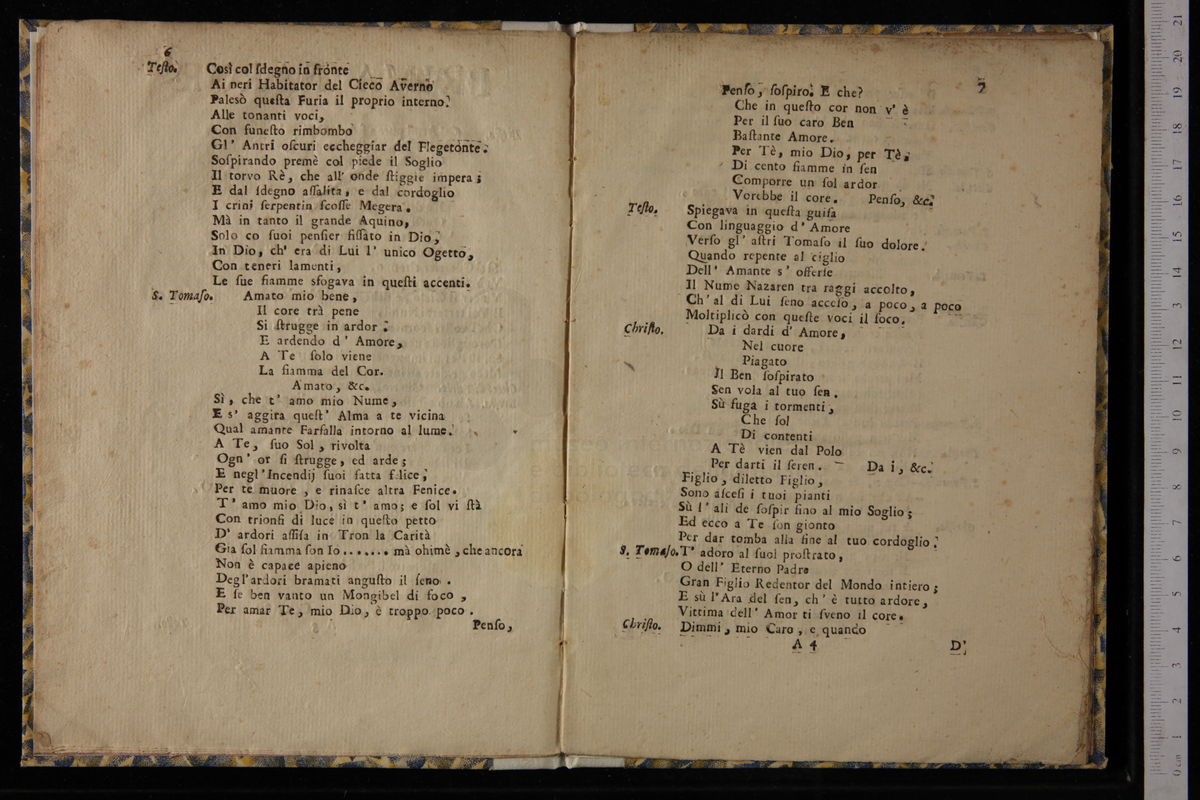 6
Teſto. Così col ſdegno in fronte
Ai neri Habitator del Cieco Averno
Palesò queſta Furia il proprio interno.
Alle tonanti voci,
Con funeſto rimbombo
Gl' Antri oſcuri eccheggiar del Flegetonte.
Soſpirando premè col piede il Soglio
Il torvo Rè, che all' onde ſtiggie impera;
E dal ſdegno aſſalita, e dal cordoglio
I crini ſerpentin ſcoſſe Megera.
Mà in tanto il grande Aquino,
Solo co ſuoi penſier fiſſato in Dio,
In Dio, ch' era di Lui l' unico Ogetto,
Con teneri lamenti,
Le ſue fiamme sfogava in queſti accenti.
S. Tomaſo. Amato mio bene,
Il core trà pene
Si ſtrugge in ardor.
E ardendo d' Amore,
A Te ſolo viene
La fiamma del Cor.
Amato, &c.
Sì, che t' amo mio Nume,
E s' aggira queſt' Alma a te vicina
Qual amante Farfalla intorno al lume.
A Te, ſuo Sol, rivolta
Ogn' or ſi ſtrugge, ed arde;
E negl' Incendij ſuoi fatta f lice,
Per te muore, e rinaſce altra Fenice.
T' amo mio Dio, sì t' amo; e ſol vi ſtà
Con trionfi di luce in queſto petto
D' ardori aſſiſa in Tron la Carità
Gia ſol fiamma ſon Io....... mà ohimè, che ancora
Non è capace apieno
Degl' ardori bramati anguſto il ſeno.
E ſe ben vanto un Mongibel di foco,
Per amar Te, mio Dio, è troppo poco.
Penſo,
7
Penſo, ſoſpiro. E che?
Che in queſto cor non v' è
Per il ſuo caro Ben
Baſtante Amore.
Per Tè, mio Dio, per Tè,
Di cento fiamme in ſen
Comporre un ſol ardor
Vorebbe il core. Penſo, &c.
Teſto. Spiegava in queſta guiſa
Con linguaggio d' Amore
Verſo gl' aſtri Tomaſo il ſuo dolore.
Quando repente al ciglio
Dell' Amante s' offerſe
Il Nume Nazaren tra raggi accolto,
Ch' al di Lui ſeno acceſo, a poco, a poco
Moltiplicò con queſte voci il foco.
Chriſto. Da i dardi d' Amore,
Nel cuore
Piagato
Il Ben ſoſpirato
Sen vola al tuo ſen.
Sù fuga i tormenti,
Che ſol
Di contenti
A Tè vien dal Polo
Per darti il ſeren. Da i, &c.
Figlio, diletto Figlio,
Sono aſceſi i tuoi pianti
Sù l' ali de ſoſpir fino al mio Soglio;
Ed ecco a Te ſon gionto
Per dar tomba alla fine al tuo cordoglio.
S. Tomaſo. T' adoro al ſuol proſtrato,
O dell' Eterno Padre
Gran Figlio Redentor del Mondo intiero;
E sù l' Ara del ſen, ch' è tutto ardore,
Vittima dell' Amor ti ſveno il core.
Chriſto. Dimmi, mio Caro, e quando
A 4 D'